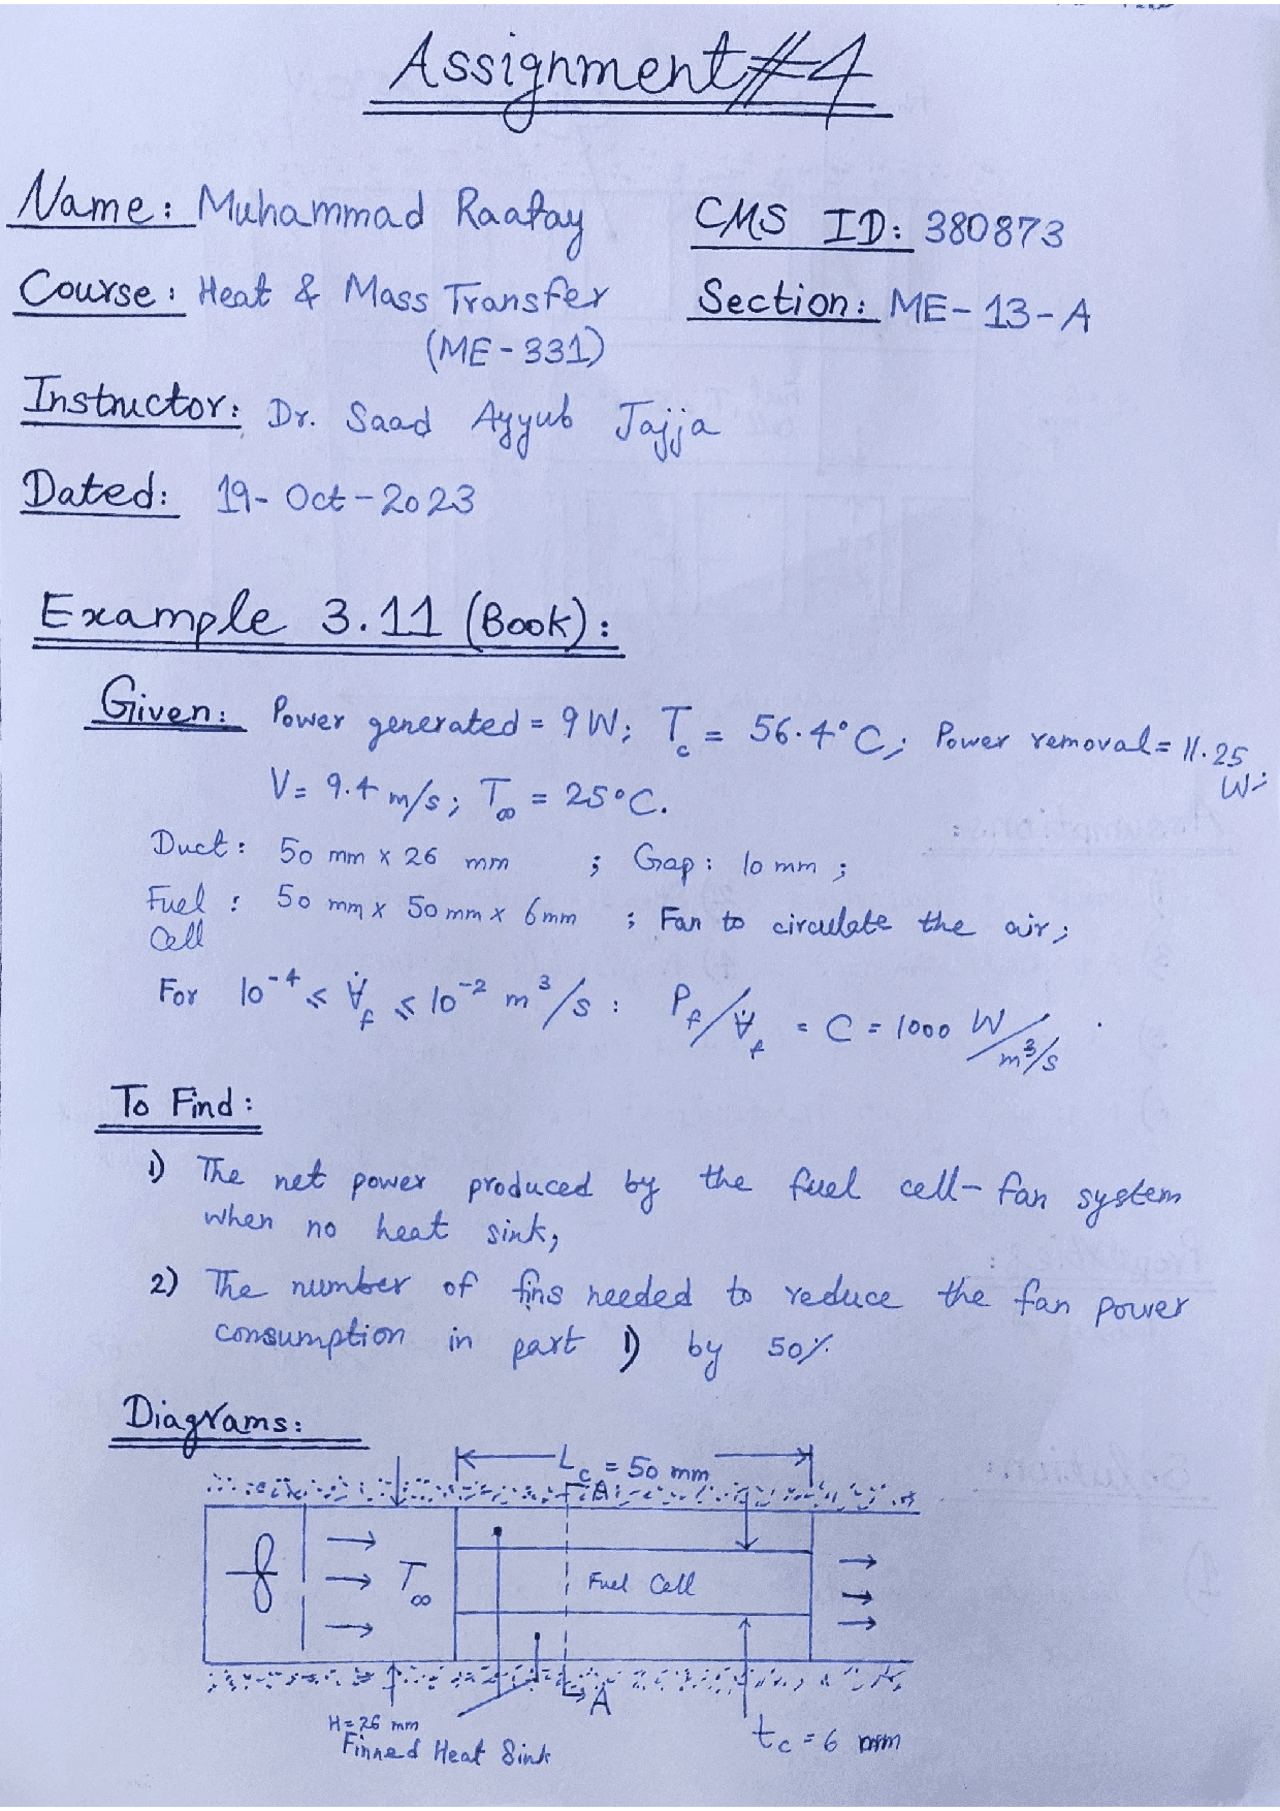 Assignment #4
Name: Muhammad Raafay CMS ID: 380873
Course: Heat & Mass Transfer Section: ME-13-A
(ME-331)
Instructor: Dr. Saad Ayyub Jajja
Dated: 19-Oct-2023
Example 3.11 (Book):
Given: Power generated = 9 W; T_c = 56.4°C; Power removal = 11.25 W;
V = 9.4 m/s; T_∞ = 25°C.
Duct: 50 mm x 26 mm ; Gap: 10 mm ;
Fuel Cell : 50 mm x 50 mm x 6 mm ; Fan to circulate the air;
For 10^-4 ≤ V̶̇_f ≤ 10^-2 m^3/s : P_f/V̶̇_f = C = 1000 W/m^3/s .
To Find:
1) The net power produced by the fuel cell-fan system
when no heat sink,
2) The number of fins needed to reduce the fan power
consumption in part 1) by 50%.
Diagrams:
L_c = 50 mm
A
T_∞ Fuel Cell
A
H = 26 mm
Finned Heat Sink
t_c = 6 mm